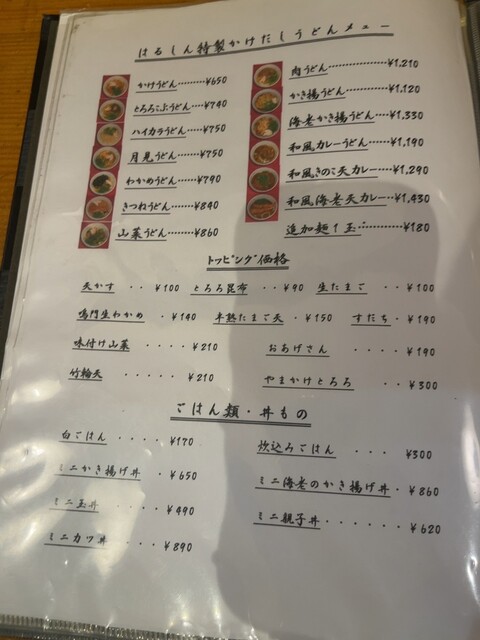 はるしん特製かけだしうどんメニュー
かけうどん………¥650
とろろこぶうどん…¥740
ハイカラうどん……¥750
月見うどん……¥750
わかめうどん……¥790
きつねうどん……¥840
山菜うどん……¥860
肉うどん………………¥1,210
かき揚うどん…………¥1,120
海老かき揚うどん……¥1,330
和風カレーうどん……¥1,190
和風きのこ天カレー…¥1,290
和風海老天カレー…¥1,430
追加麺1玉…………¥180
トッピング価格
天かす ・・ ¥100 とろろ昆布 ・・ ¥90 生たまご ・・ ¥100
鳴門生わかめ ・ ¥140 半熟たまご天 ・ ¥150 すだち ・ ¥190
味付け山菜 ・・・・ ¥210 おあげさん ・・・・ ¥190
竹輪天 ・・・・・ ¥210 やまかけとろろ ・・ ¥300
ごはん類・丼もの
白ごはん ・・・・ ¥170
ミニかき揚げ丼 ・ ¥650
ミニ玉丼 ・・・・ ¥490
ミニカツ丼 ・・・ ¥890
炊込みごはん ・・・ ¥300
ミニ海老のかき揚げ丼 ・ ¥860
ミニ親子丼 ・・・・・・・ ¥620